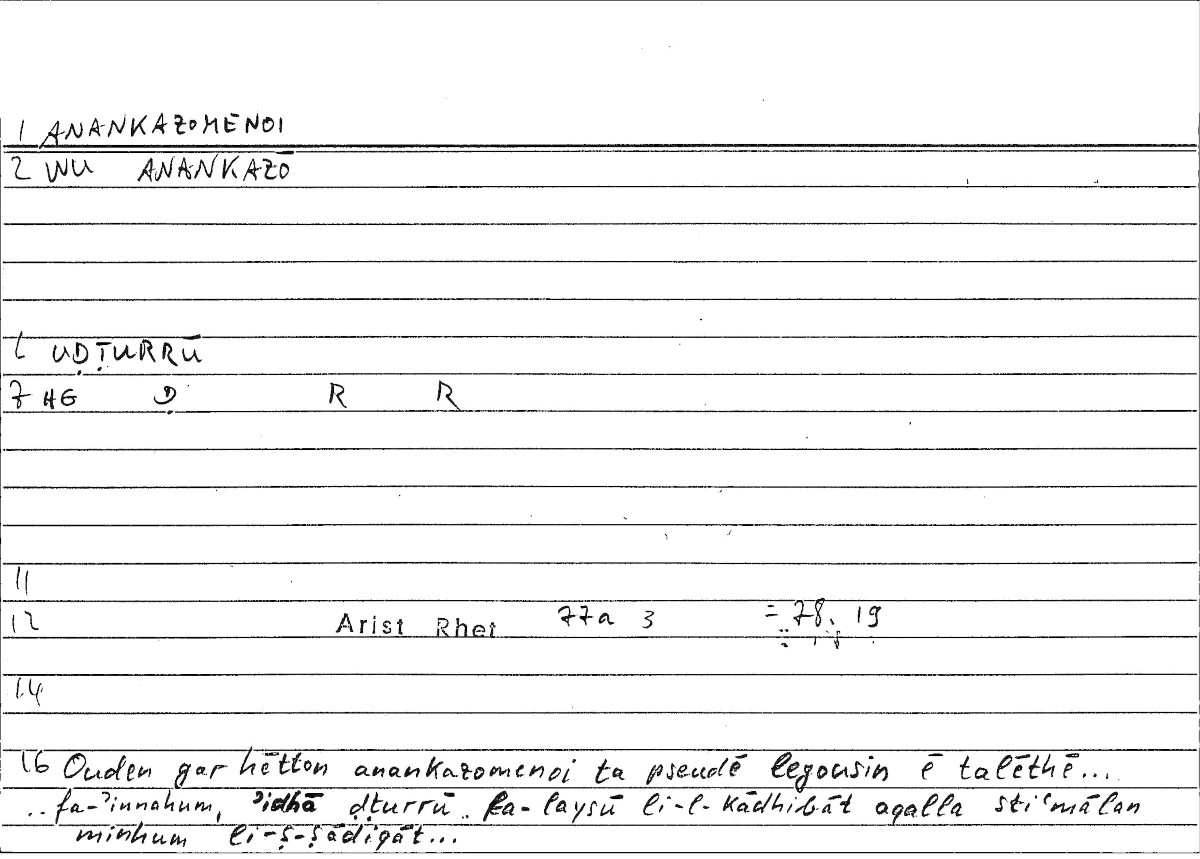 1 ANANKAZOMENOI
2 WU ANANKAZŌ
6 UḌṬURRŪ
7 HG Ḍ R R
11
12 Arist Rhet 77a 3 = 78. 19
14
16 Ouden gar hētton anankazomenoi ta pseudē legousin ē talēthē...
.. fa-ʾinnahum, ʾidhā ḍṭurrū. fa-laysū li-l-kādhibāt aqalla stiʿmālan
minhum li-ṣ-ṣādiqāt...